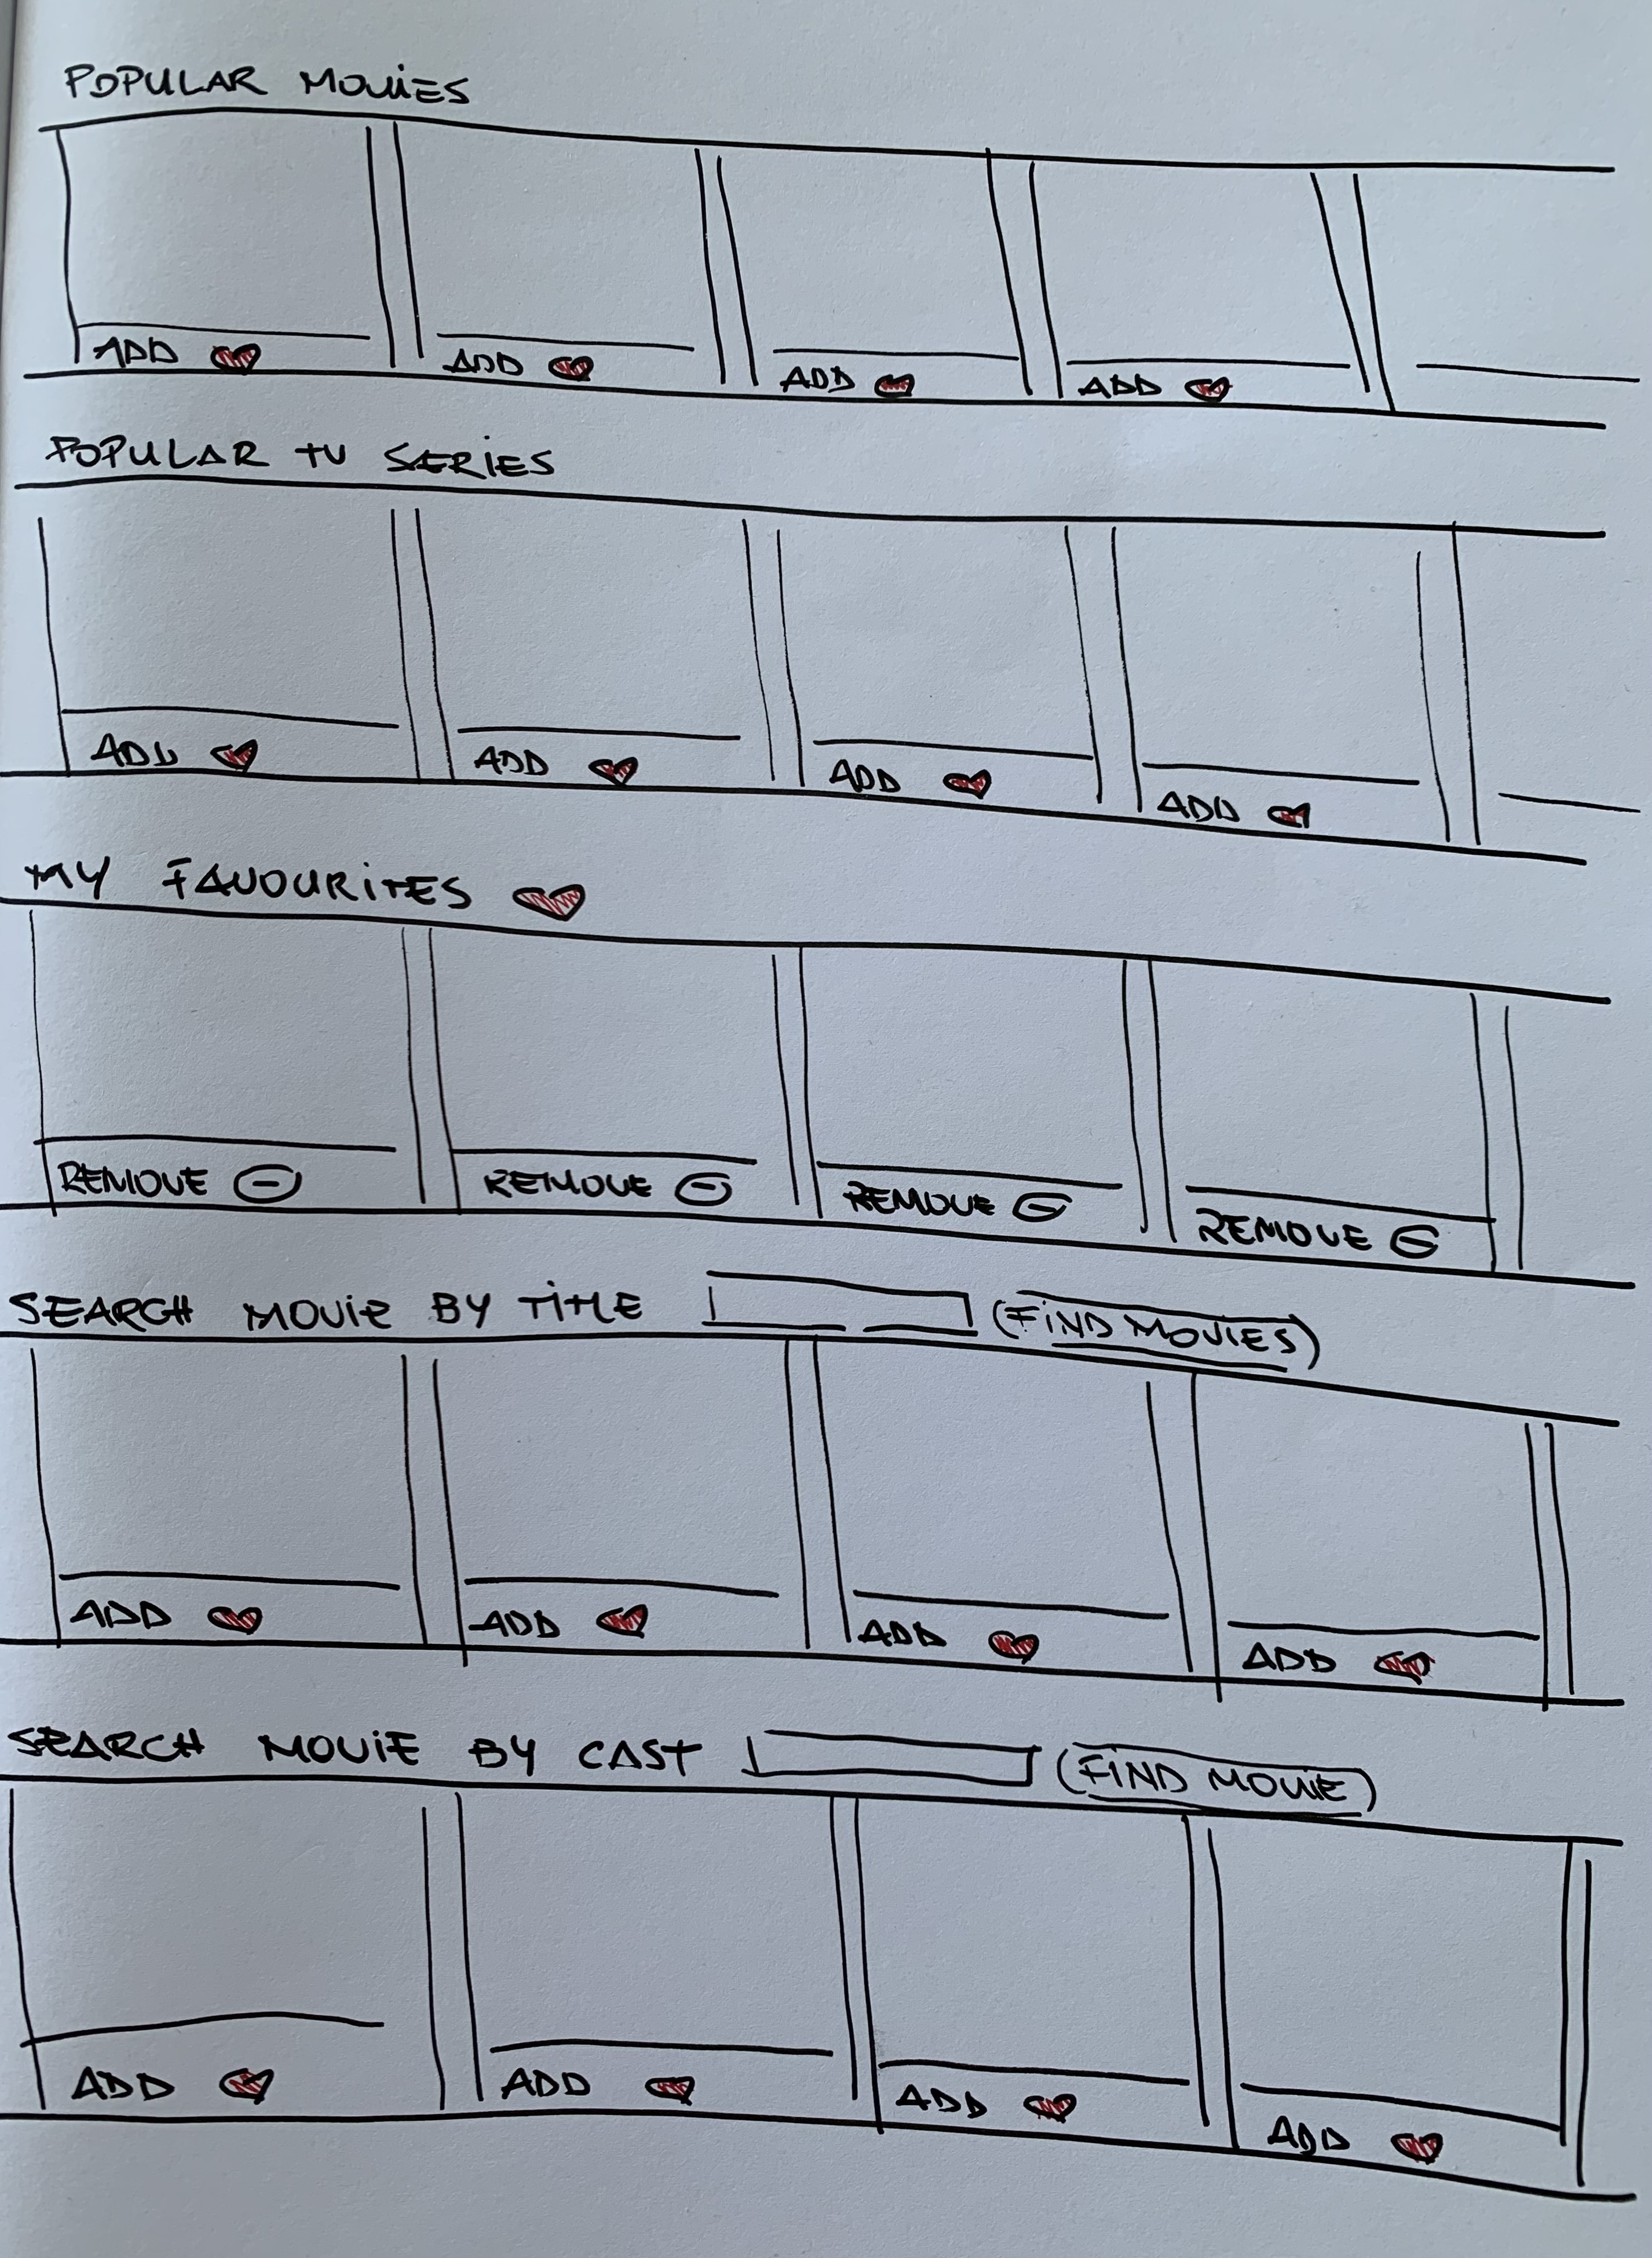 POPULAR MOVIES
ADD ADD ADD ADD
POPULAR TV SERIES
ADD ADD ADD ADD
MY FAVOURITES
REMOVE REMOVE REMOVE REMOVE
SEARCH MOVIE BY TITLE (FIND MOVIES)
ADD ADD ADD ADD
SEARCH MOVIE BY CAST (FIND MOVIE)
ADD ADD ADD ADD